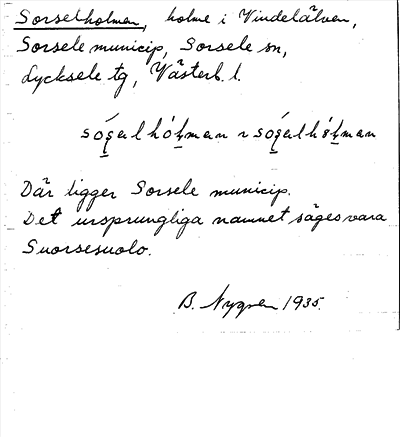 Sorselholmen, holme i Vindelälven,
Sorsele municip, Sorsele sn,
Lycksele tg, Västerb. l.
Där ligger Sorsele municip.
Det ursprungliga namnet säges vara
Suorsesuolo.
B. Nygren 1935.